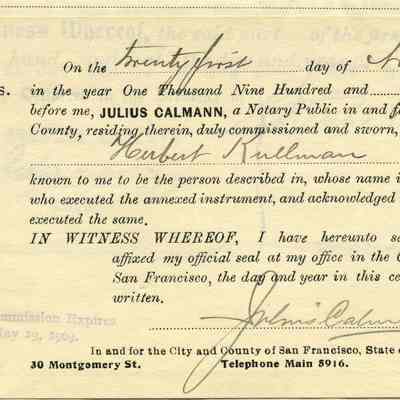 On the twenty first day of
s. in the year One Thousand Nine Hundred and
before me, JULIUS CALMANN, a Notary Public in and f
County, residing therein, duly commissioned and sworn,
Herbert Kullman
known to me to be the person described in, whose name i
who executed the annexed instrument, and acknowledged
executed the same.
IN WITNESS WHEREOF, I have hereunto se
affixed my official seal at my office in the C
San Francisco, the day and year in this ce
written.
mmission Expires
ay 29, 1909.
Julius Calma
In and for the City and County of San Francisco, State o
30 Montgomery St. Telephone Main 5916.